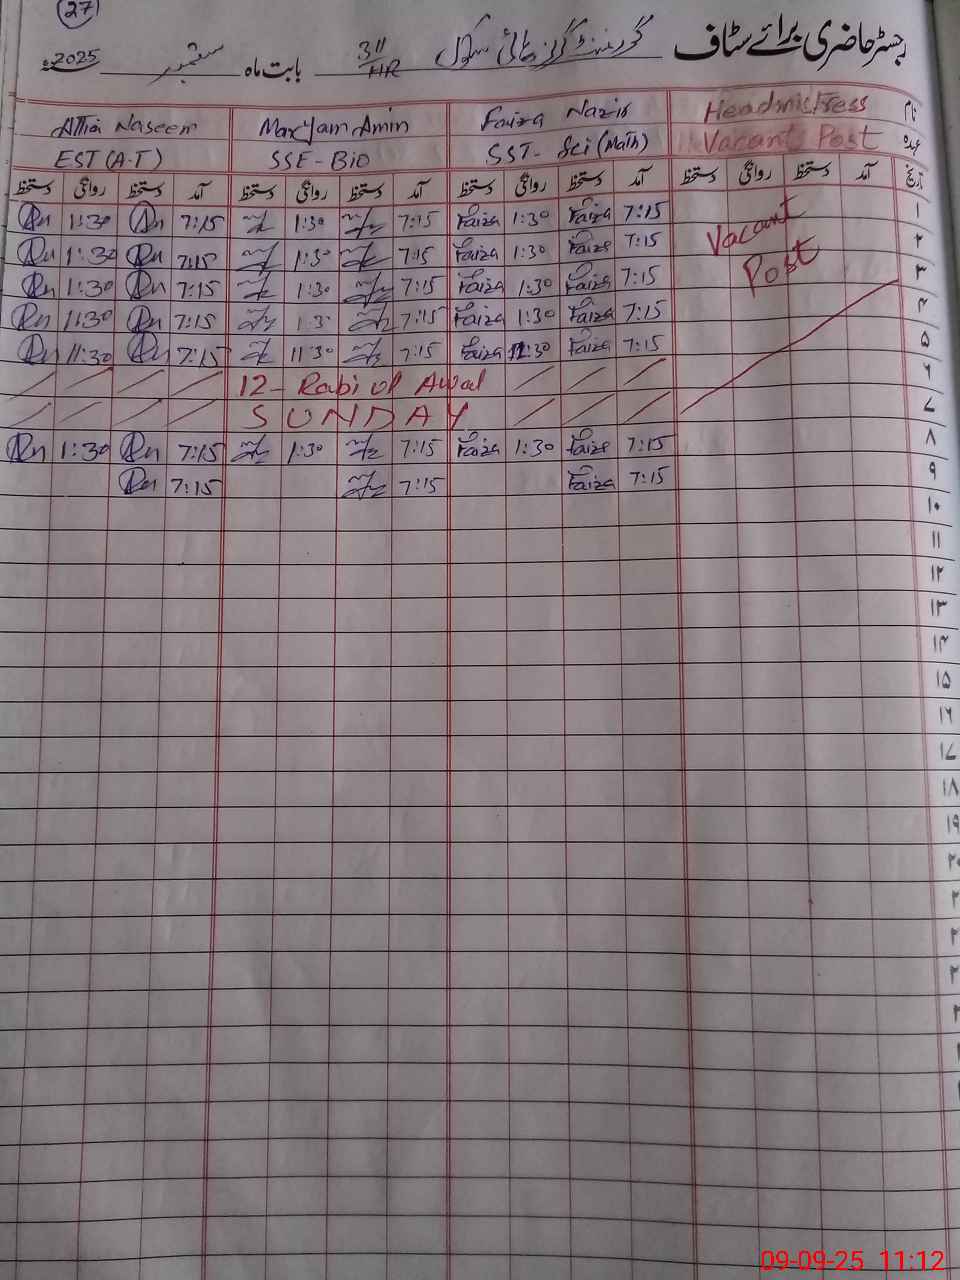 27
رجسٹر حاضری برائے سٹاف گورنمنٹ گرلز ہائی سکول 311/HR بابت ماہ ستمبر 2025ء
نام Headmistress Faiza Nazir Maryam Amin Attia Naseem
عہدہ Vacant Post SST- Sci (Math) SSE-Bio EST (A.T)
تاریخ آمد دستخط روانگی دستخط آمد دستخط روانگی دستخط آمد دستخط روانگی دستخط آمد دستخط روانگی دستخط
۱ Vacant 7:15 Faiza 1:30 Faiza 7:15 1:30 7:15 1:30
۲ Post 7:15 Faiza 1:30 Faiza 7:15 1:30 7:15 1:30
۳ 7:15 Faiza 1:30 Faiza 7:15 1:30 7:15 1:30
۴ 7:15 Faiza 1:30 Faiza 7:15 1:3 7:15 11:30
۵ 7:15 Faiza 11:30 Faiza 7:15 11:30 7:15 11:30
۶ 12- Rabi ul Awal
۷ SUNDAY
۸ 7:15 Faiza 1:30 Faiza 7:15 1:30 7:15 1:30
۹ 7:15 Faiza 7:15 7:15
۱۰
۱۱
۱۲
۱۳
۱۴
۱۵
۱۶
۱۷
۱۸
۱۹
۲۰
09-09-25 11:12